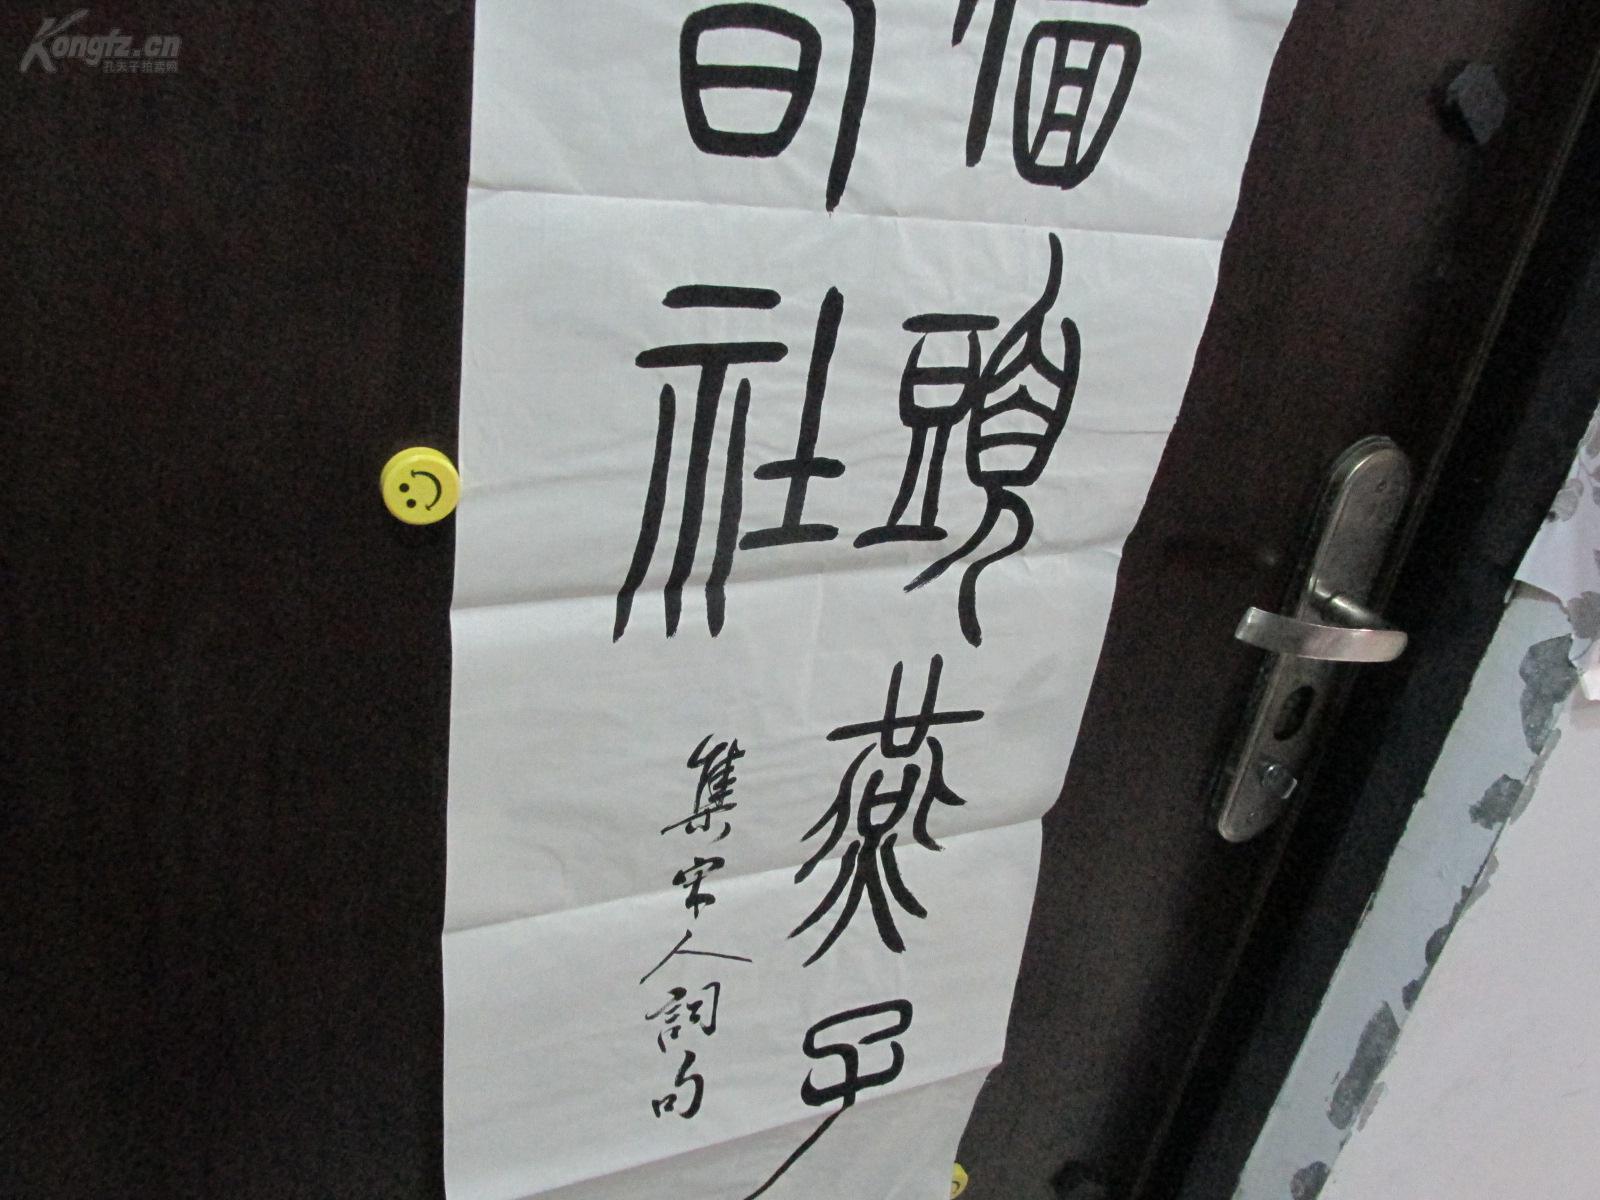 Kongfz.cn
孔夫子拍卖网
頭燕子
社
集宋人詞句